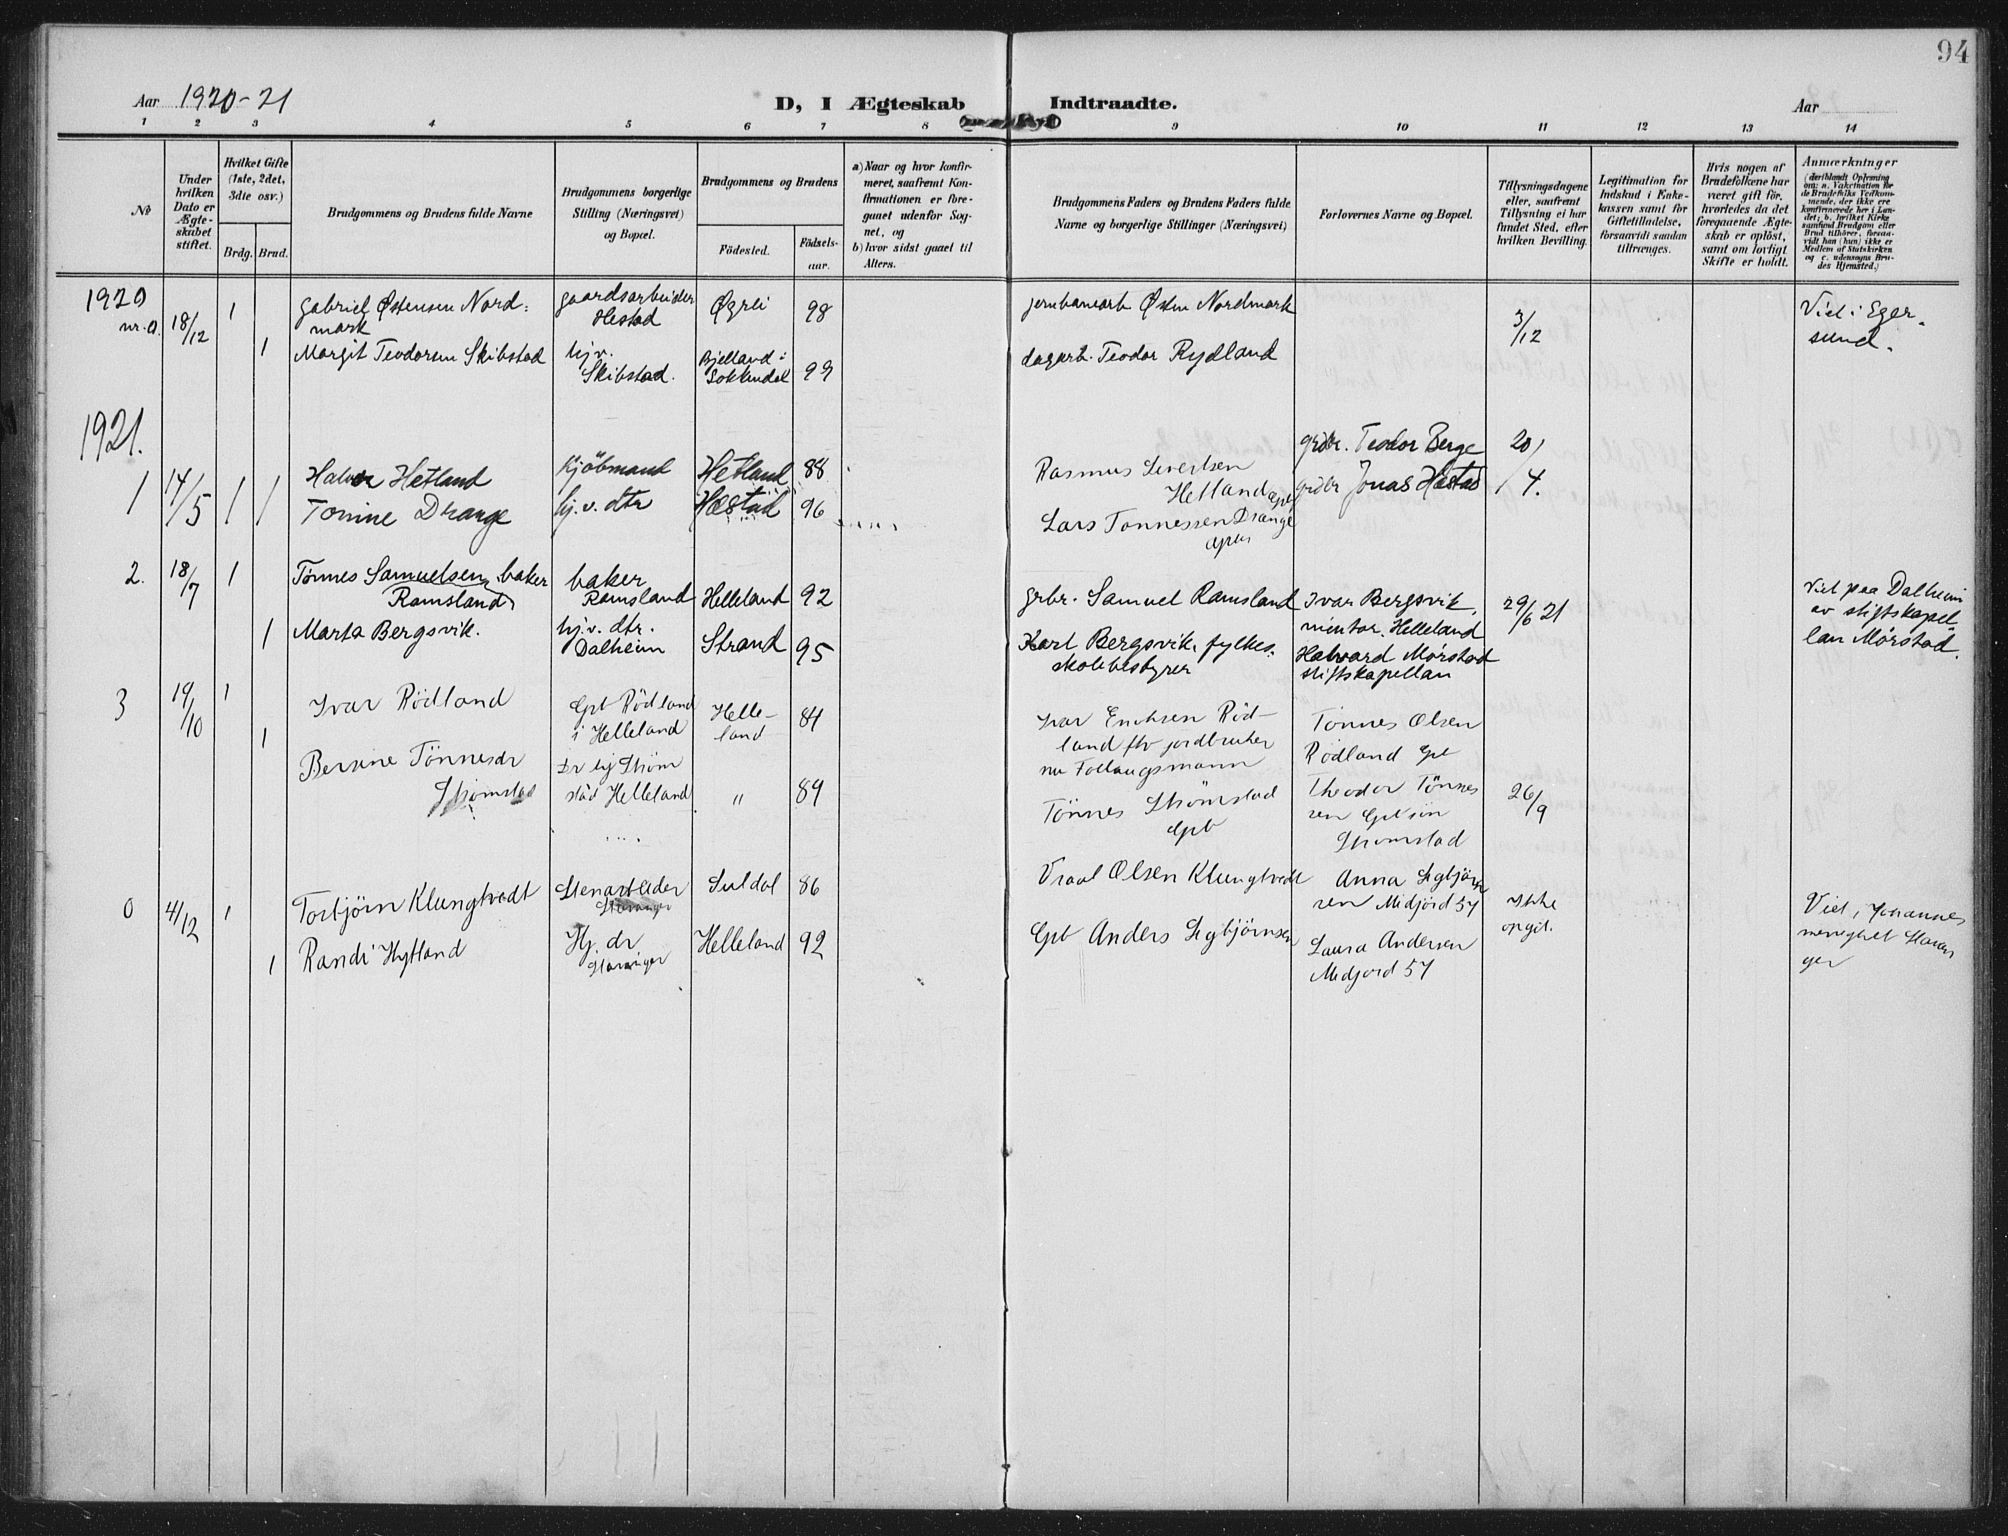 94
Aar 1920-21 D, I Ægteskab Indtraadte. Aar
1 2 3 4 5 6 7 8 9 10 11 12 13 14
No
Under hvilken Dato er Ægteskabet stiftet.
Hvilket Gifte (1ste, 2det, 3die osv.)
Brdg. Brud.
Brudgommens og Brudens fulde Navne
Brudgommens borgerlige Stilling (Næringsvei) og Bopæl.
Brudgommens og Brudens
Födested. Födselsaar.
a) Naar og hvor konfirmeret, saafremt Konfirmationen er foregaaet udenfor Sognet, og
b) hvor sidst gaaet til Alters.
Brudgommens Faders og Brudens Faders fulde Navne og borgerlige Stillinger (Næringsvei)
Forlovernes Navne og Bopæl.
Tillysningsdagene eller, saafremt Tillysning ei har fundet Sted, efter hvilken Bevilling.
Legitimation for Indskud i Enkekassen samt for Giftetilladelse, forsaavidt saadan tiltrænges.
Hvis nogen af Brudefolkene har været gift før, hvorledes da det foregaaende Ægteskab er oplöst, samt om lovligt Skifte er holdt.
Anmærkninger (deriblandt Oplysning om: a. Vakcination for de Brudefolks Vedkommende, der ikke ere konfirmerede her i Landet; b. hvilket Kirkesamfund Brudgom eller Brud tilhörer, forsaavidt han (hun) ikke er Medlem af Statskirken og c. udensogns Brudes Hjemsted.)
1920
nr. 0. 18/12 1 Gabriel Østensen Nordmark gaardsarbeider Hestad Øgrei 98 jernbanearb Østen Nordmark 3/12 Viet i Egersund.
1 Margit Teodorsen Skibstad hj.v. Skibstad. Bjelland i Sokkndal 99 dagarb. Teodor Rydland
1921.
1 14/5 1 Halvor Hetland Kjöbmand Hetland 88 Rasmus Sivertsen Hetland grdbr. Teodor Berge 20/4.
1 Tomine Drange hj.v. dtr Hæstad 96 Lars Tønnessen Drange grdbr Jonas Hæstad
2. 18/7 1 Tønnes Samuelsen, baker Ramsland baker Ramsland Helleland 92 grbr. Samuel Ramsland Ivar Bergsvik, Helleland 29/6 21 Viet paa Dalheim av stiftskapellan Mørstad.
1 Marta Bergsvik. hj.v. dtr. Dalheim Strand 95 Karl Bergsvik, fylkesskolebestyrer Halvard Mørstad stiftskapellan
3 19/10 1 Ivar Rödland Gpb Rödland i Helleland Helleland 84 Ivar Eriksen Rödland fhv jordbruker nu Tønnes Olsen Rödland Gpb
1 Bersine Tönnesdr Strömstad Dr hj Strömstad Helleland " 89 Tönnes Strömstad Gpb Theodor Tönnessen Gpb sön Strömstad 26/9
0 4/12 1 Torbjörn Klungtvedt Stenarbeider Stavanger Suldal 86 Vraal Olsen Klungtvedt Anna Sigbjörnsen Midjord 57 Ikke opgit. Viet i Johannes menighet Stavanger
1 Randi Hytland Hj. dr Stavanger Helleland 92 Gpb Anders Sigbjörnsen Laura Andersen Midjord 57